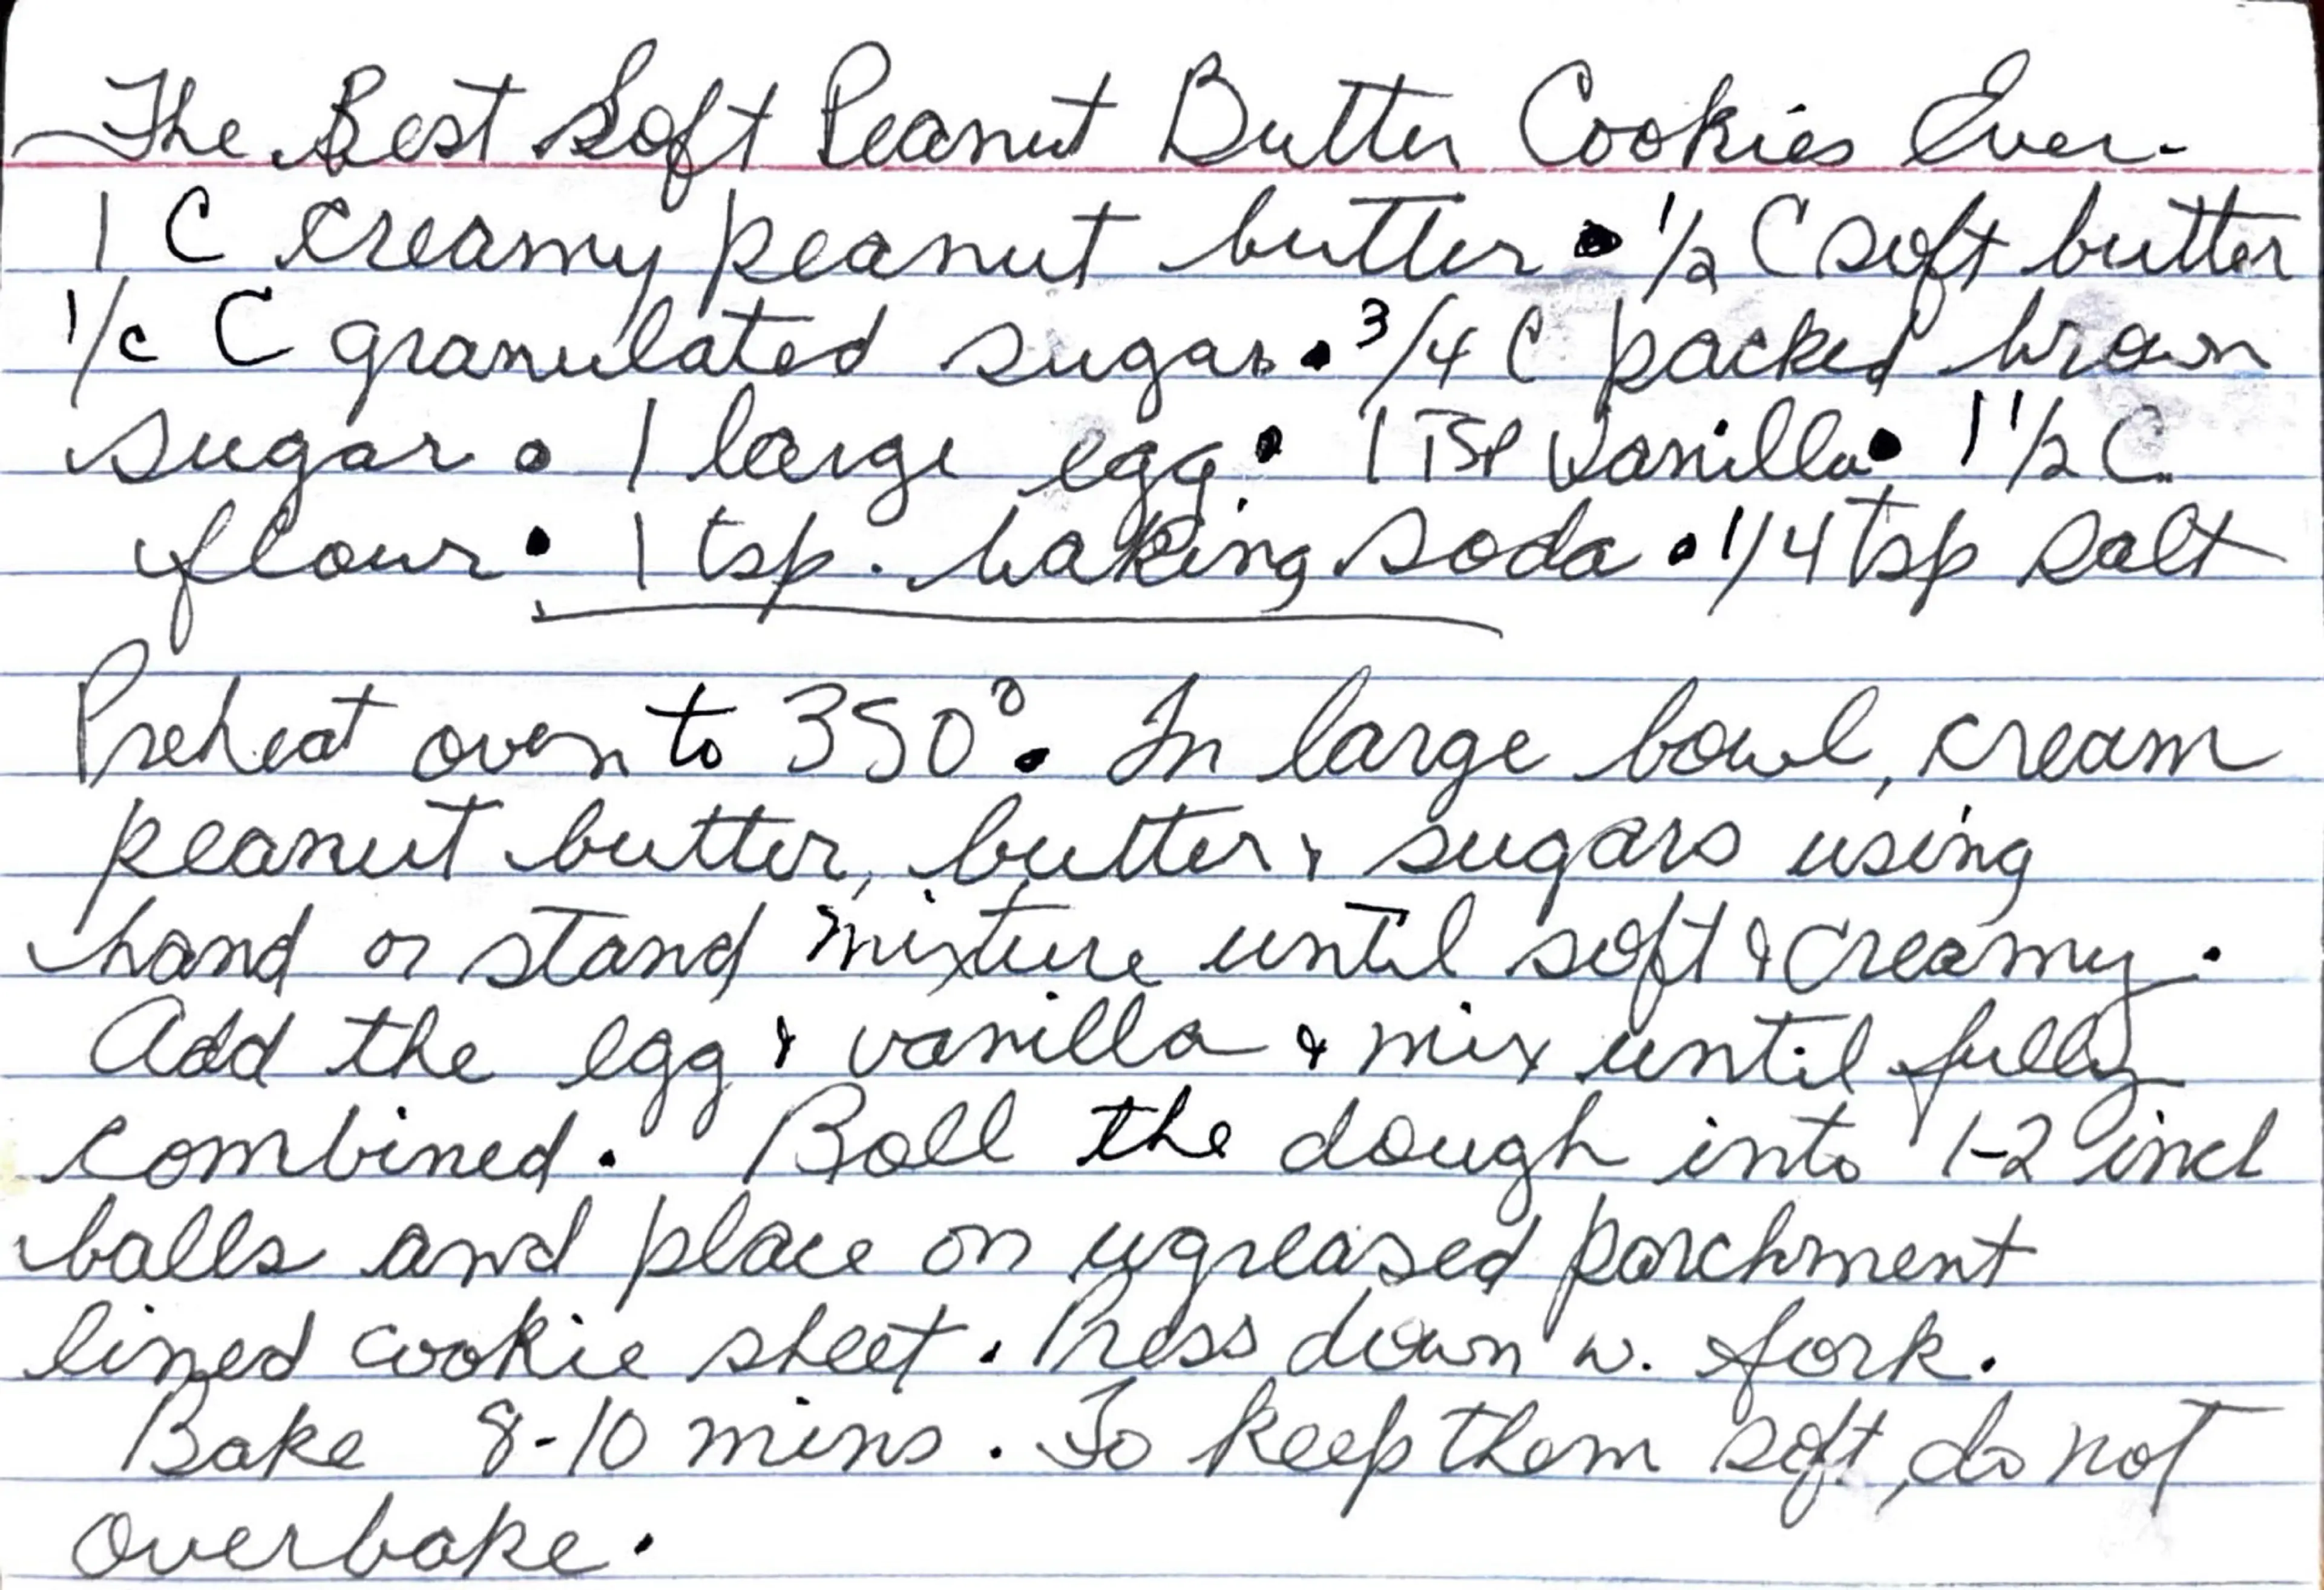 The Best Soft Peanut Butter Cookies Ever.
1 C creamy peanut butter • 1/2 C soft butter
1/c C granulated sugar • 3/4 C packed brown
sugar • 1 large egg • 1 TSP Vanilla • 1 1/2 C.
flour • 1 tsp. baking soda • 1/4 tsp salt
Preheat oven to 350°. In large bowl, cream
peanut butter, butter & sugars using
hand or stand mixture until soft & creamy.
Add the egg & vanilla & mix until fully
combined. Boll the dough into 1-2 inch
balls and place on ugreased parchment
lined cookie sheet. Press down w. fork.
Bake 8-10 mins. To keep them soft, do not
overbake.